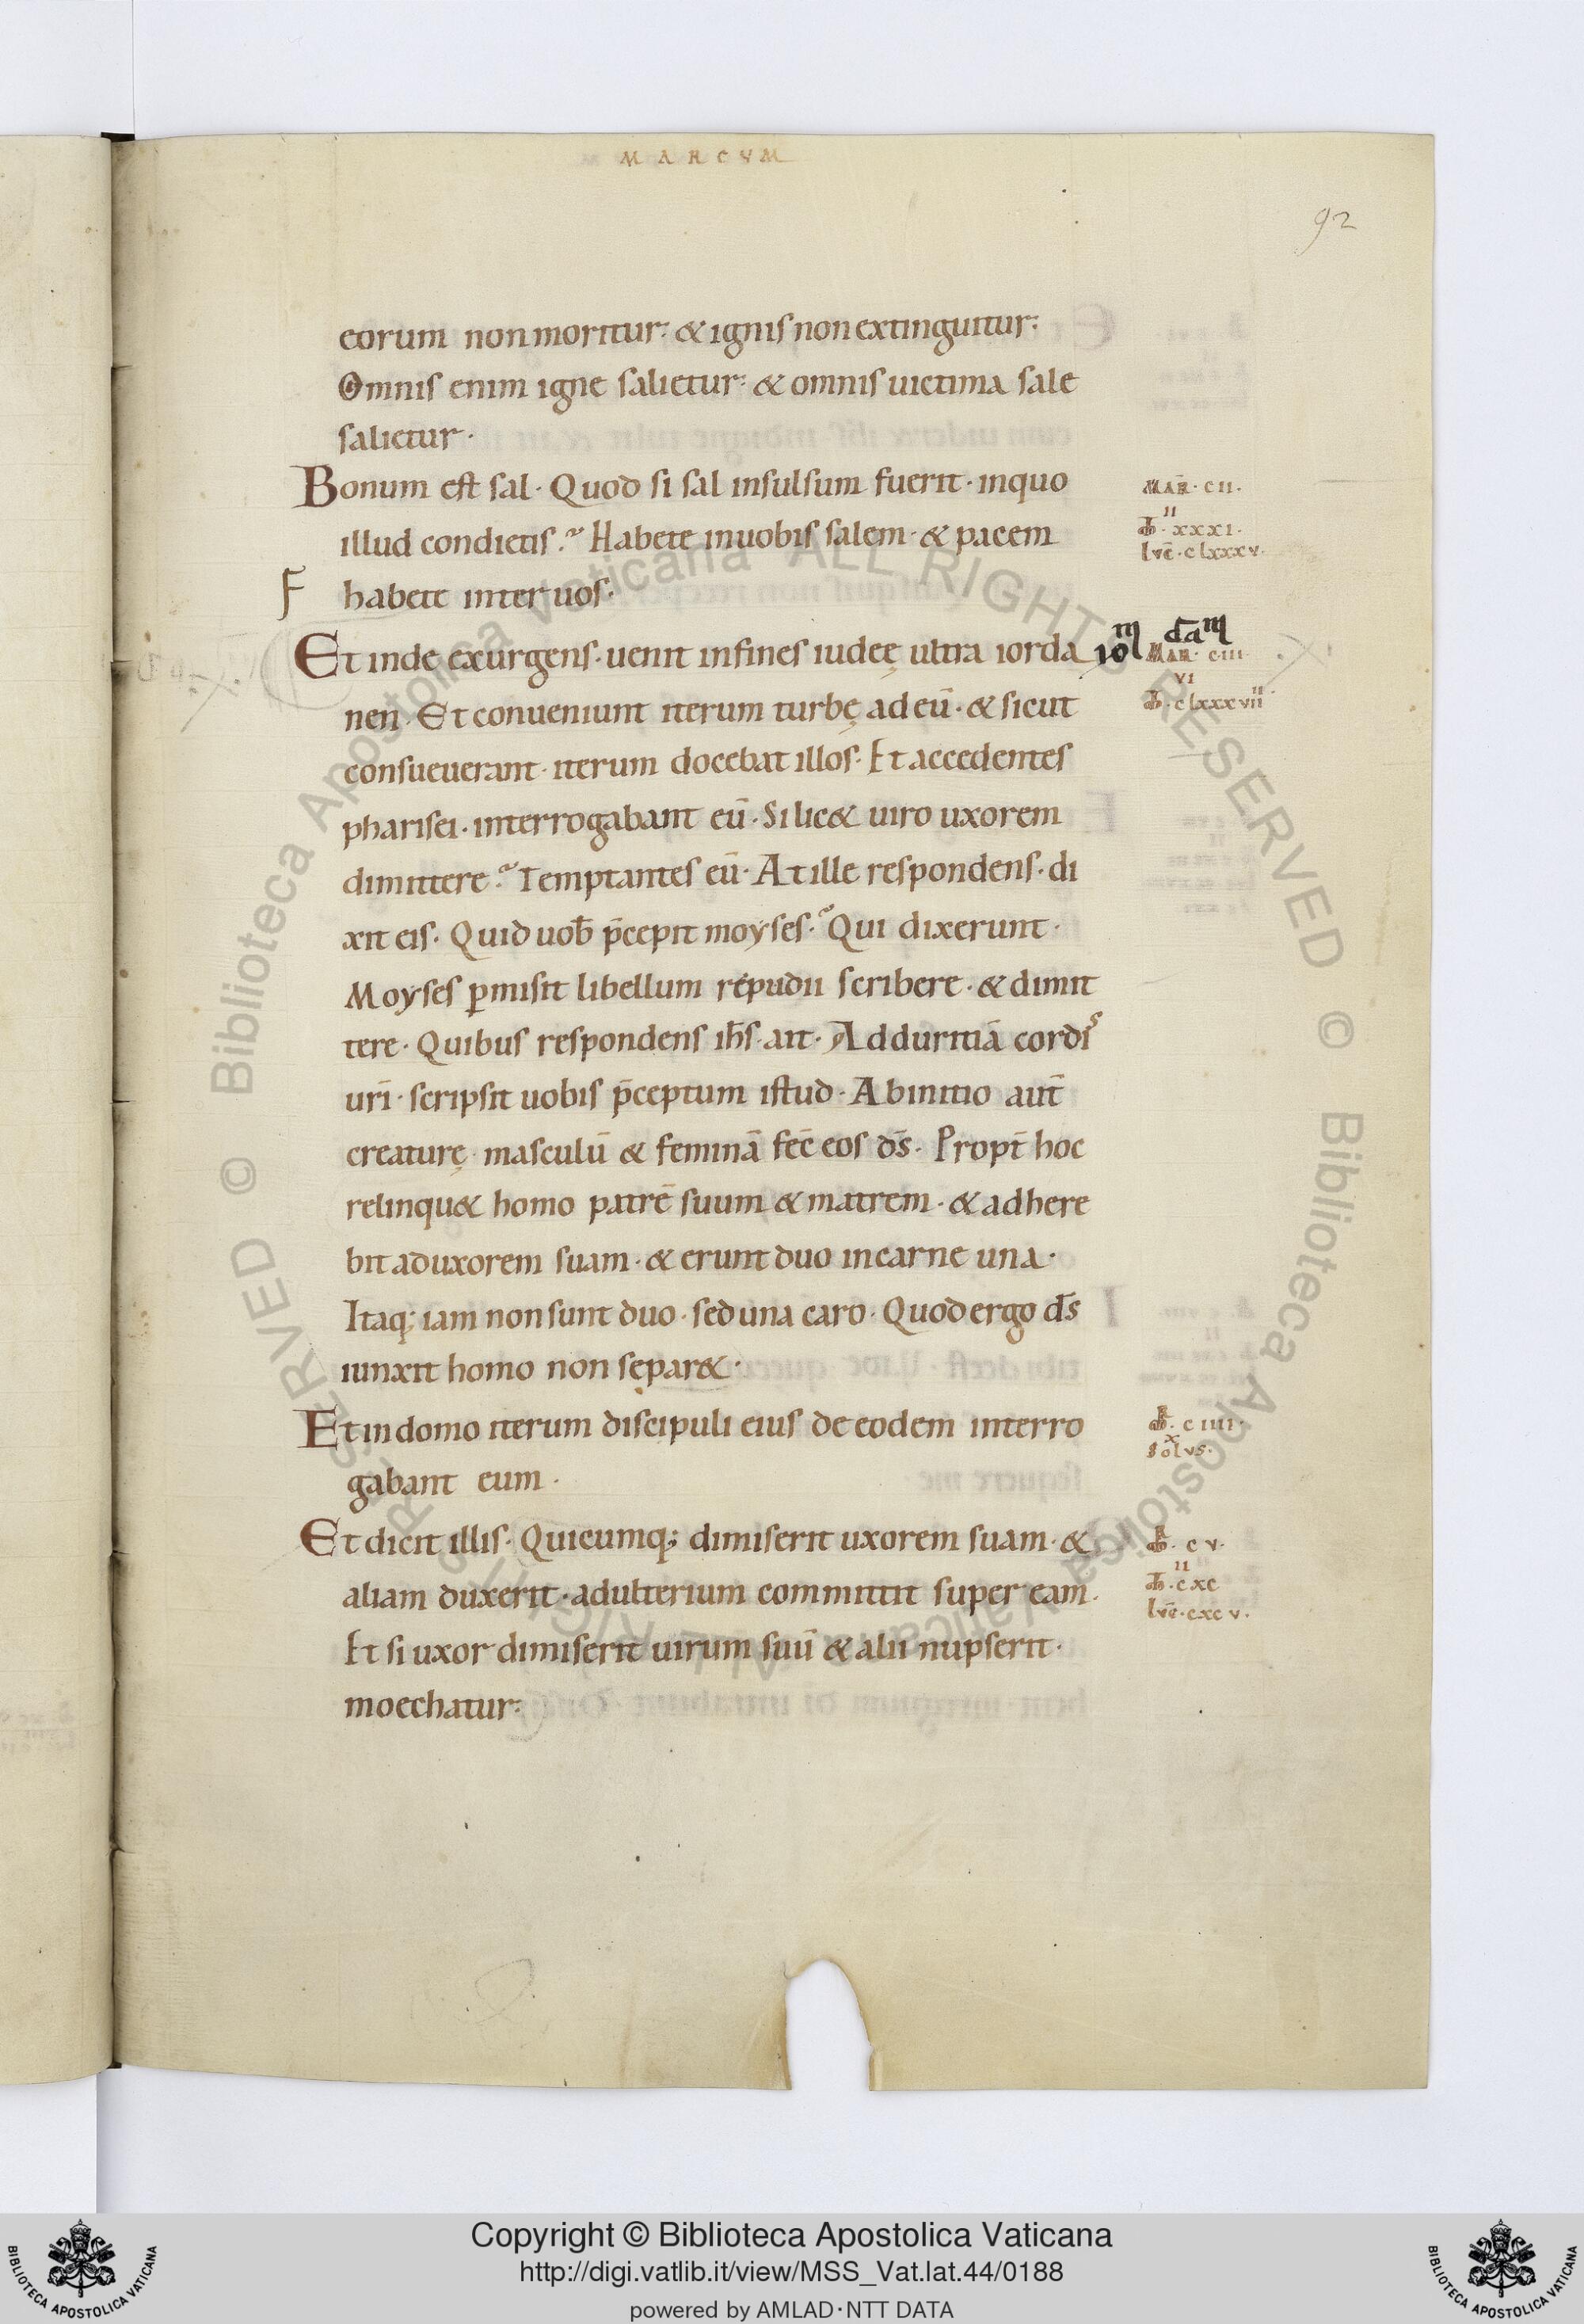 MARCVM
92
eorum non moritur: & ignis non extinguitur:
Omnis enim igne salietur: & omnis uictima sale
salietur.
Bonum est sal. Quod si sal insulsum fuerit. inquo
MAR̄. CII.
II
XXXI.
lvc̄. clxxxv.
illud condietis? Habete inuobis salem. & pacem
F habete inter uos.
Et inde exurgens. uenit infines iudeę ultra iorda
MAR̄. CIII
VI
clxxxvii
nen. Et conueniunt iterum turbę ad eū. & sicut
consueuerant. iterum docebat illos. Et accedentes
pharisei. interrogabant eū. Si lic& uiro uxorem
dimittere? Temptantes eū. At ille respondens. di
xit eis. Quid uob̄ p̄cepit moyses? Qui dixerunt.
Moyses ꝑmisit libellum repudii scribere. & dimit
tere. Quibus respondens ih̄s. ait. Ad duritiā cordis
ur̄i. scripsit uobis p̄ceptum istud. Ab initio aut̄
creaturę masculū & feminā fec̄ eos d̄s. Propt̄ hoc
relinqu& homo patrē suum & matrem. & adhere
bit ad uxorem suam. & erunt duo in carne una.
Itaq; iam non sunt duo. sed una caro. Quod ergo d̄s
iunxit homo non separ&.
Et in domo iterum discipuli eius de eodem interro
C IIII.
X
solvs.
gabant eum.
Et dicit illis. Quicumq; dimiserit uxorem suam. &
C V.
II
cxc
lvc̄. cxcv.
aliam duxerit. adulterium committit super eam.
Et si uxor dimiserit uirum suū & alii nupserit.
moechatur:
© Biblioteca Apostolica Vaticana ALL RIGHTS RESERVED © Biblioteca Apostolica Vaticana ALL RIGHTS RESERVED
Copyright © Biblioteca Apostolica Vaticana
http://digi.vatlib.it/view/MSS_Vat.lat.44/0188
powered by AMLAD·NTT DATA
BIBLIOTECA APOSTOLICA VATICANA
BIBLIOTECA APOSTOLICA VATICANA